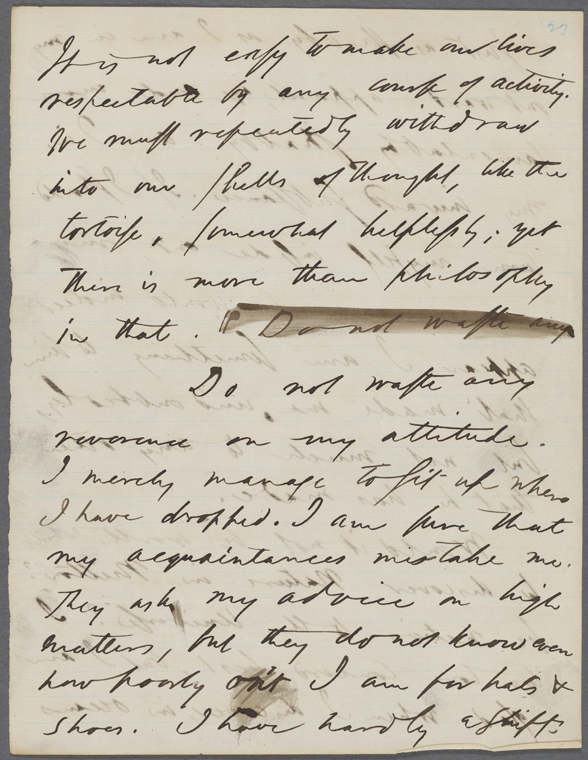 23
It is not easy to make our lives
respectable by any course of activity.
We must repeatedly withdraw
into our shells of thought, like the
tortoise, somewhat helplessly; yet
there is more than philosophy
in that. Do not waste any
Do not waste any
reverence on my attitude.
I merely manage to sit up where
I have dropped. I am sure that
my acquaintances mistake me.
They ask my advice on high
matters, but they do not know even
how poorly on't I am for hats &
shoes. I have hardly a shift.